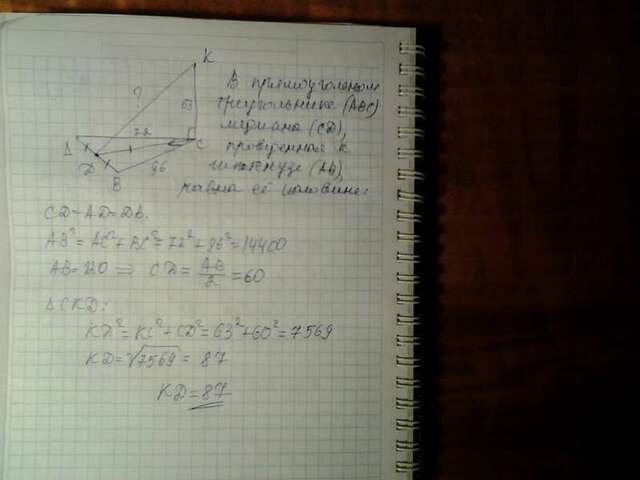 K
?
63
72
A
C
D
B
96
В прямоугольном
треугольнике (ABC)
медиана (CD),
проведенная к
гипотенузе (AB),
равна её половине:
CD=AD=DB.
AB²=AC²+BC²=72²+96²=14400
AB=120 ⇒ CD=AB/2=60
ΔCKD:
KD²=KC²+CD²=63²+60²=7569
KD=√7569=87
KD=87